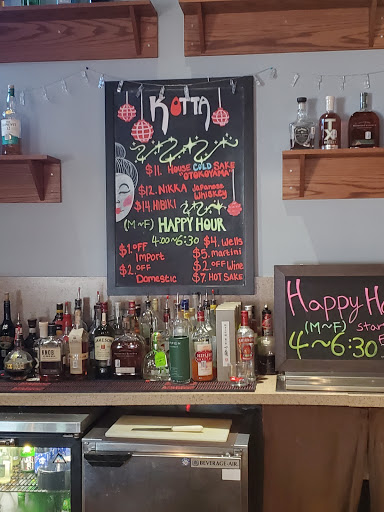 KOTTA
$11. HOUSE COLD SAKE
"OTOKOYAMA"
$12. NIKKA Japanese
Whiskey
$14. HIBIKI
(M~F) HAPPY HOUR
4:00~6:30
$1. OFF
Import
$2. OFF
Domestic
$4. Wells
$5. martini
$2. OFF Wine
$7. HOT SAKE
Happy H
(M~F) star
4~6:30
BEVERAGE-AIR